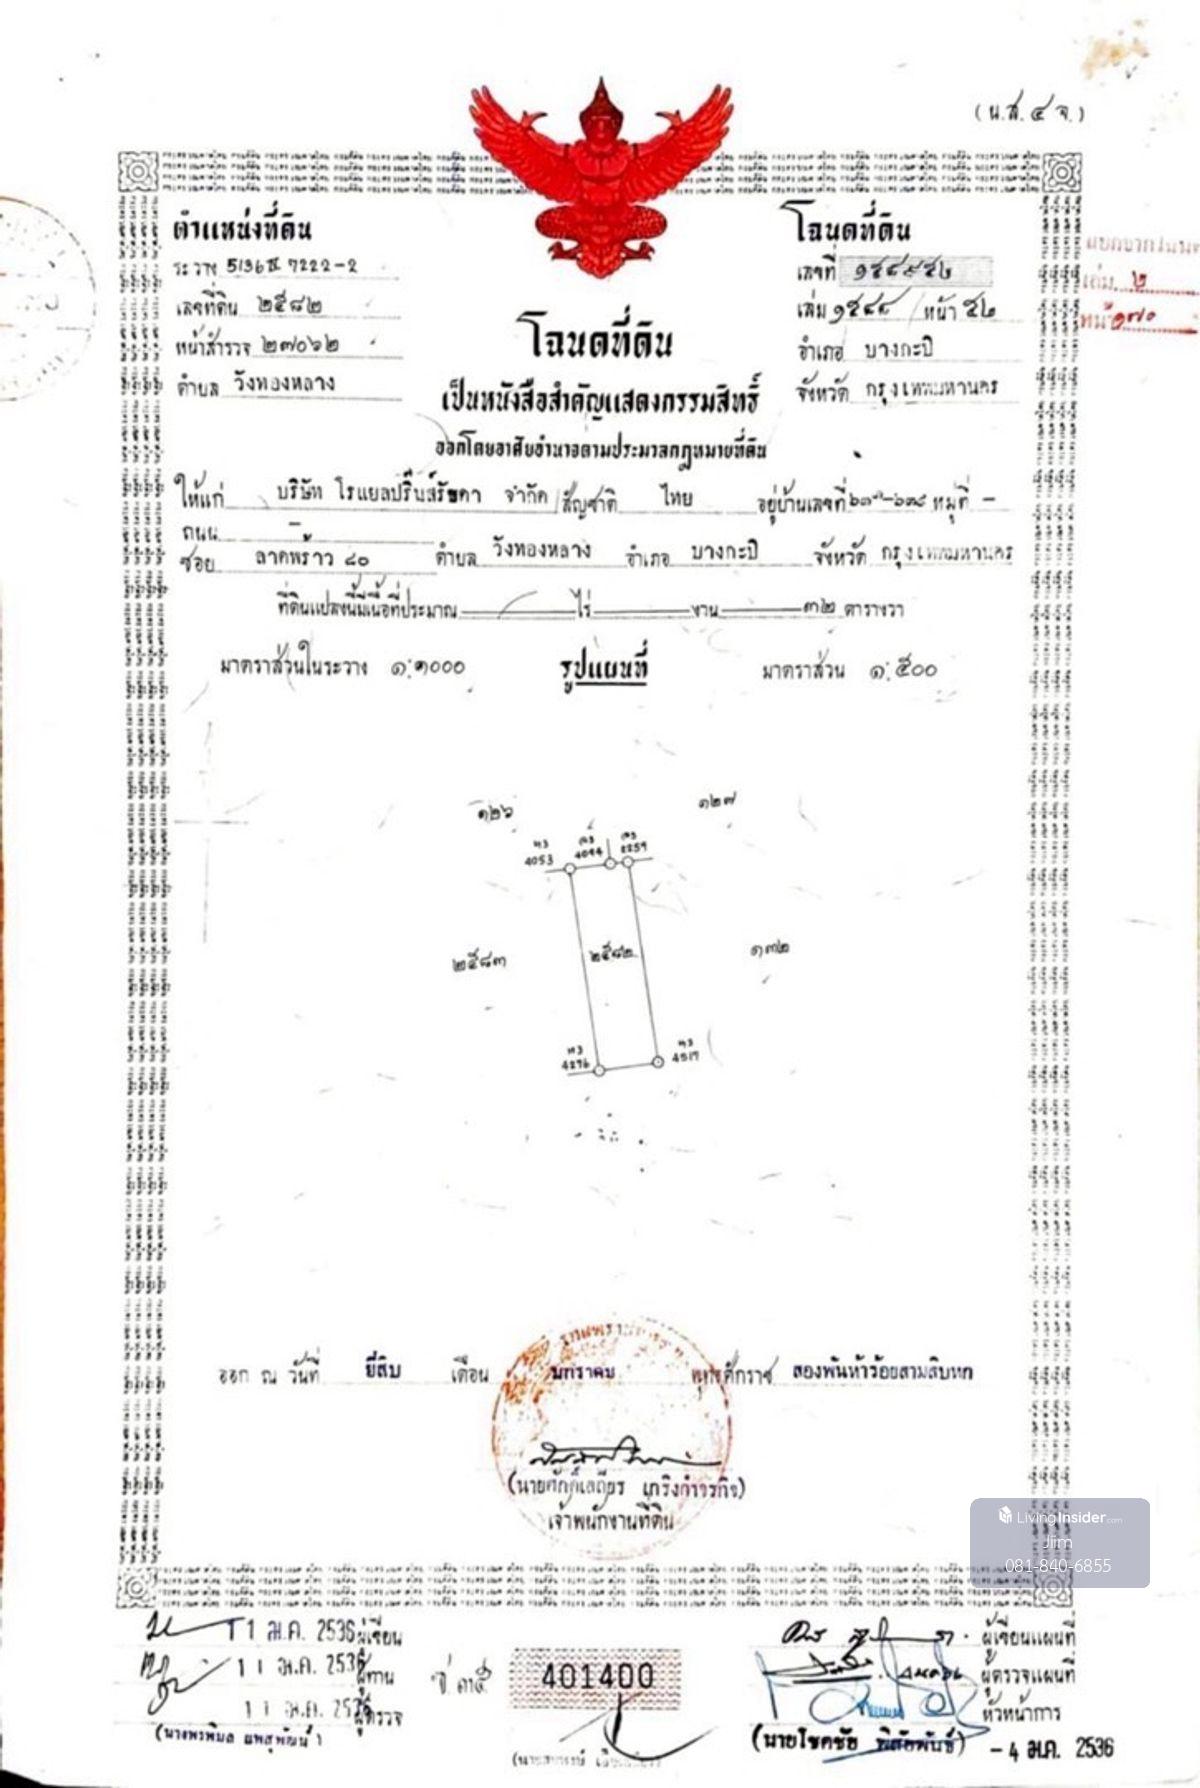 (น.ส.๔ จ.)
ตำแหน่งที่ดิน
ระวาง 5136 IV 7222-2
เลขที่ดิน ๒๕๘๒
หน้าสำรวจ ๒๗๐๖๒
ตำบล วังทองหลาง
โฉนดที่ดิน
เลขที่ ๑๕๔๙๕๒
หน้า ๕๒
อำเภอ บางกะปิ
จังหวัด กรุงเทพมหานคร
เล่ม ๒
หน้า ๑๗๐
โฉนดที่ดิน
เป็นหนังสือสำคัญแสดงกรรมสิทธิ์
ออกโดยอาศัยอำนาจตามประมวลกฎหมายที่ดิน
ให้แก่ บริษัท โรแยลปริ๊นส์รัชดา จำกัด สัญชาติ ไทย อยู่บ้านเลขที่ หมู่ที่ -
ถนน -
ซอย ลาดพร้าว ๘๐ ตำบล วังทองหลาง อำเภอ บางกะปิ จังหวัด กรุงเทพมหานคร
ที่ดินแปลงนี้มีเนื้อที่ประมาณ ไร่ งาน ๓๒ ตารางวา
มาตราส่วนในระวาง ๑:๑๐๐๐ รูปแผนที่ มาตราส่วน ๑:๕๐๐
๑๒๖ ๑๒๗
4053 4094 2259
๒๕๘๓ ๒๕๘๒ ๑๓๒
4296 4517
ออก ณ วันที่ ยี่สิบ เดือน มกราคม พุทธศักราช สองพันห้าร้อยสามสิบหก
(นายศักดิ์เสถียร เกริงกำจรกิจ)
เจ้าพนักงานที่ดิน
LivingInsider.com
Jiim
081-840-6855
11 ม.ค. 2536 ผู้เขียน
11 ม.ค. 2536 ผู้ทาน
11 ม.ค. 2536 ผู้ตรวจ
401400
ผู้เขียนแผนที่
ผู้ตรวจแผนที่
หัวหน้าการ
(นายโชคชัย พิสัยพันธ์) - 4 ม.ค. 2536